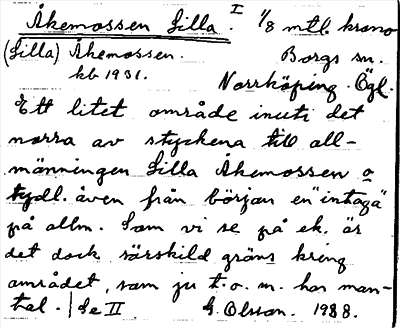 Åkemossen Lilla. I 1/8 mtl. krono
(Lilla) Åkemossen. Borgs sn.
kb 1931. Norrköping. Ögl.
Ett litet område inuti det
norra av styckena till all-
männingen Lilla Åkemossen o
tydl. även från början en "intaga"
på allm. Som vi se på ek. är
det dock särskild gräns kring
området, som ju t.o.m. har man-
tal. / Se II G. Olsson. 1938.